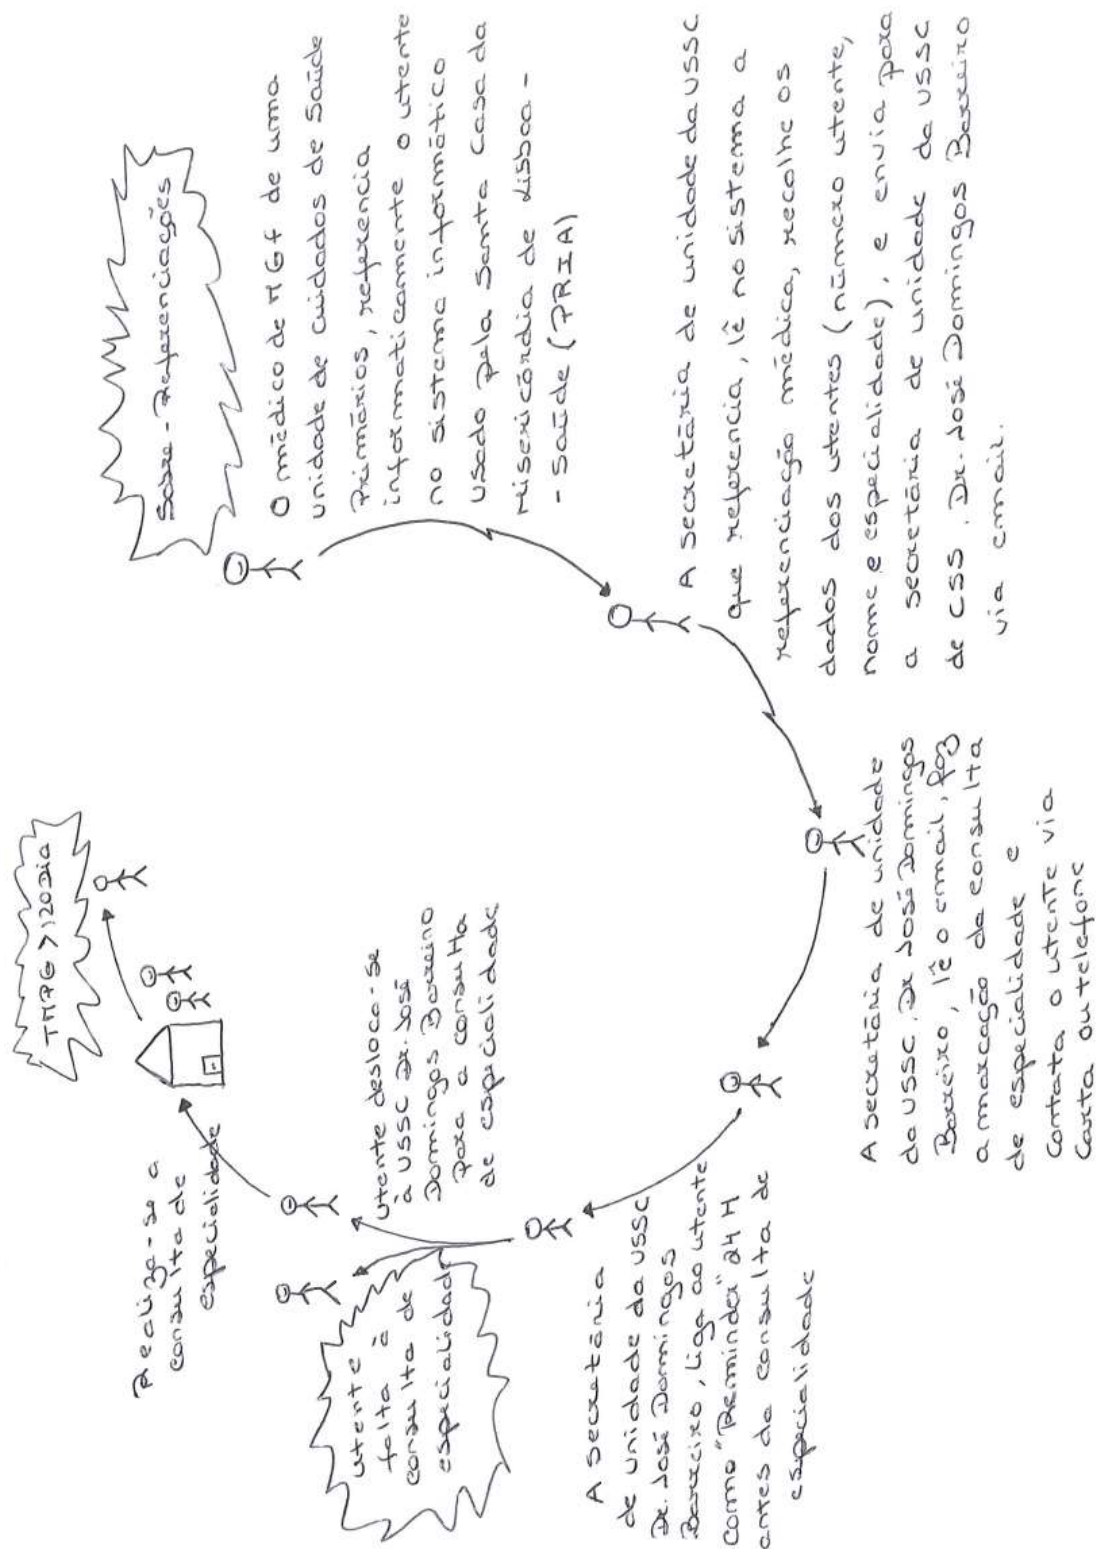 Sobre-Referenciações
O médico de MGF de uma
unidade de cuidados de saúde
Primários, referencia
informaticamente o utente
no sistema informático
usado pela Santa Casa da
Misericórdia de Lisboa -
- Saúde (PRIA)
A secretária de unidade da USSC
que referencia, lê no sistema a
referenciação médica, recolhe os
dados dos utentes (número utente,
nome e especialidade), e envia para
a secretária de unidade da USSC
de CSS. Dr. José Domingos Barreiro
via email.
A secretária de unidade
da USSC, Dr José Domingos
Barreiro, lê o email, faz
a marcação da consulta
de especialidade e
contata o utente via
Carta ou telefone
A secretária
de unidade da USSC
Dr. José Domingos
Barreiro, liga ao utente
como "Reminder" 24 H
antes da consulta de
especialidade
utente
falta à
consulta de
especialidade
utente desloca-se
à USSC Dr. José
Domingos Barreiro
para a consulta
de especialidade
Realiza-se a
consulta de
especialidade
TMRG >120 Dia